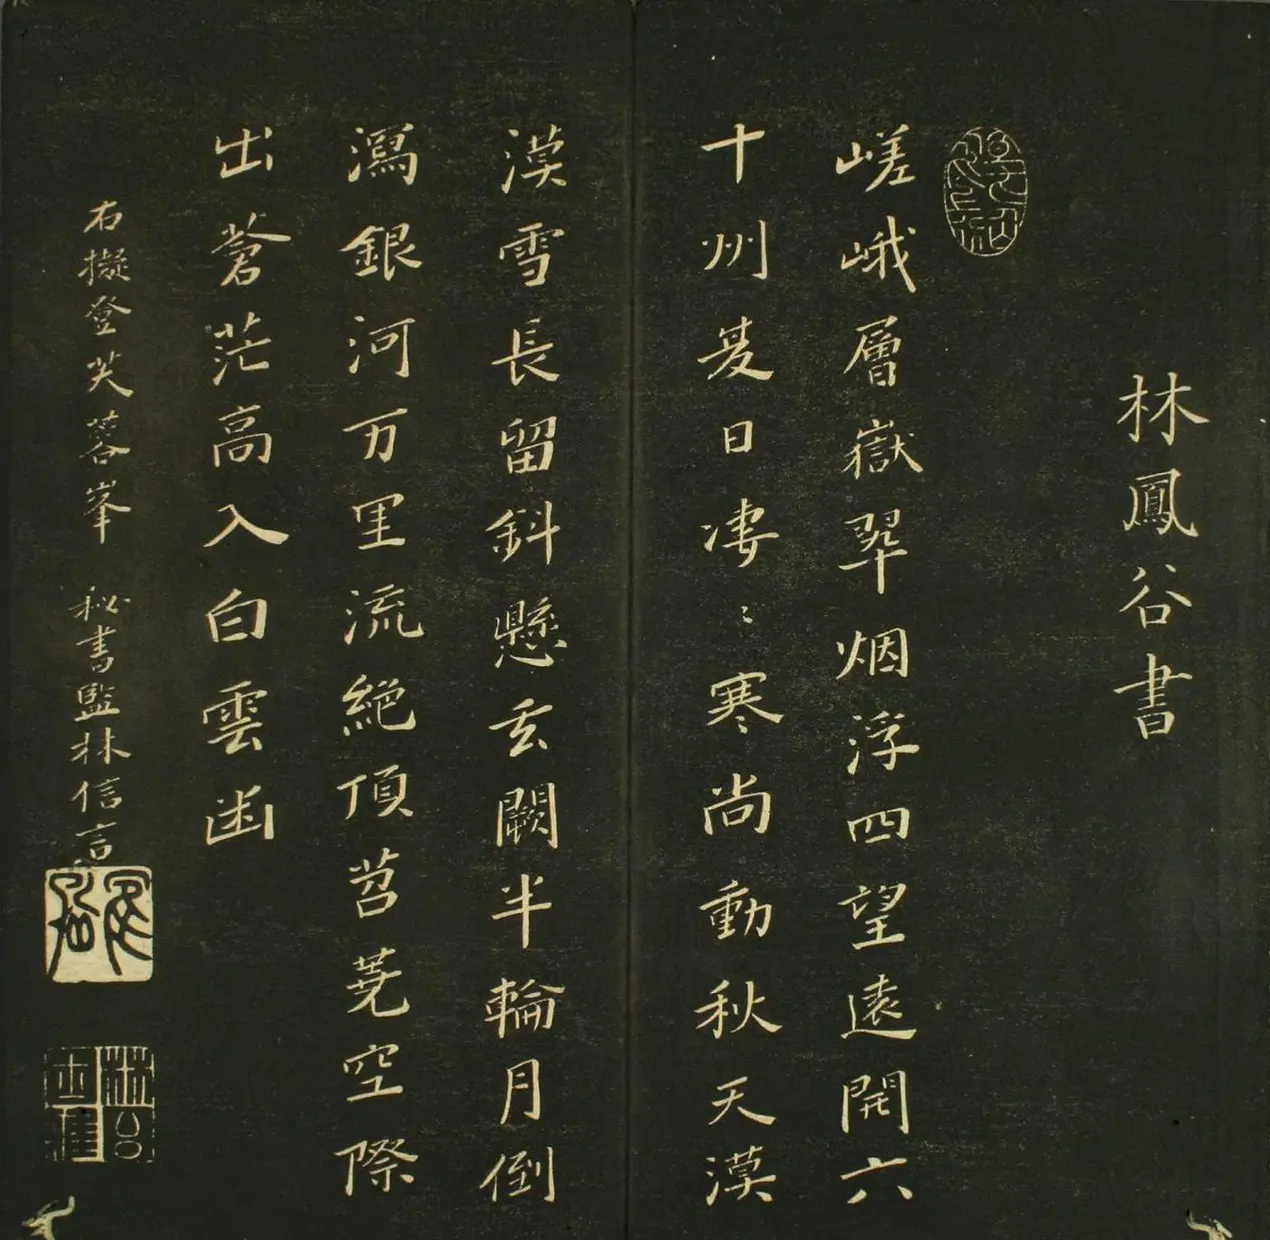 林鳳谷書
嵯峨層嶽翠烟浮四望遠開六
十州夏日凄〻寒尚動秋天漠
漠雪長留斜懸玄闕半輪月倒
瀉銀河万里流絶頂苕蕘空際
出蒼茫高入白雲幽
右擬登芙蓉峯 秘書監林信言